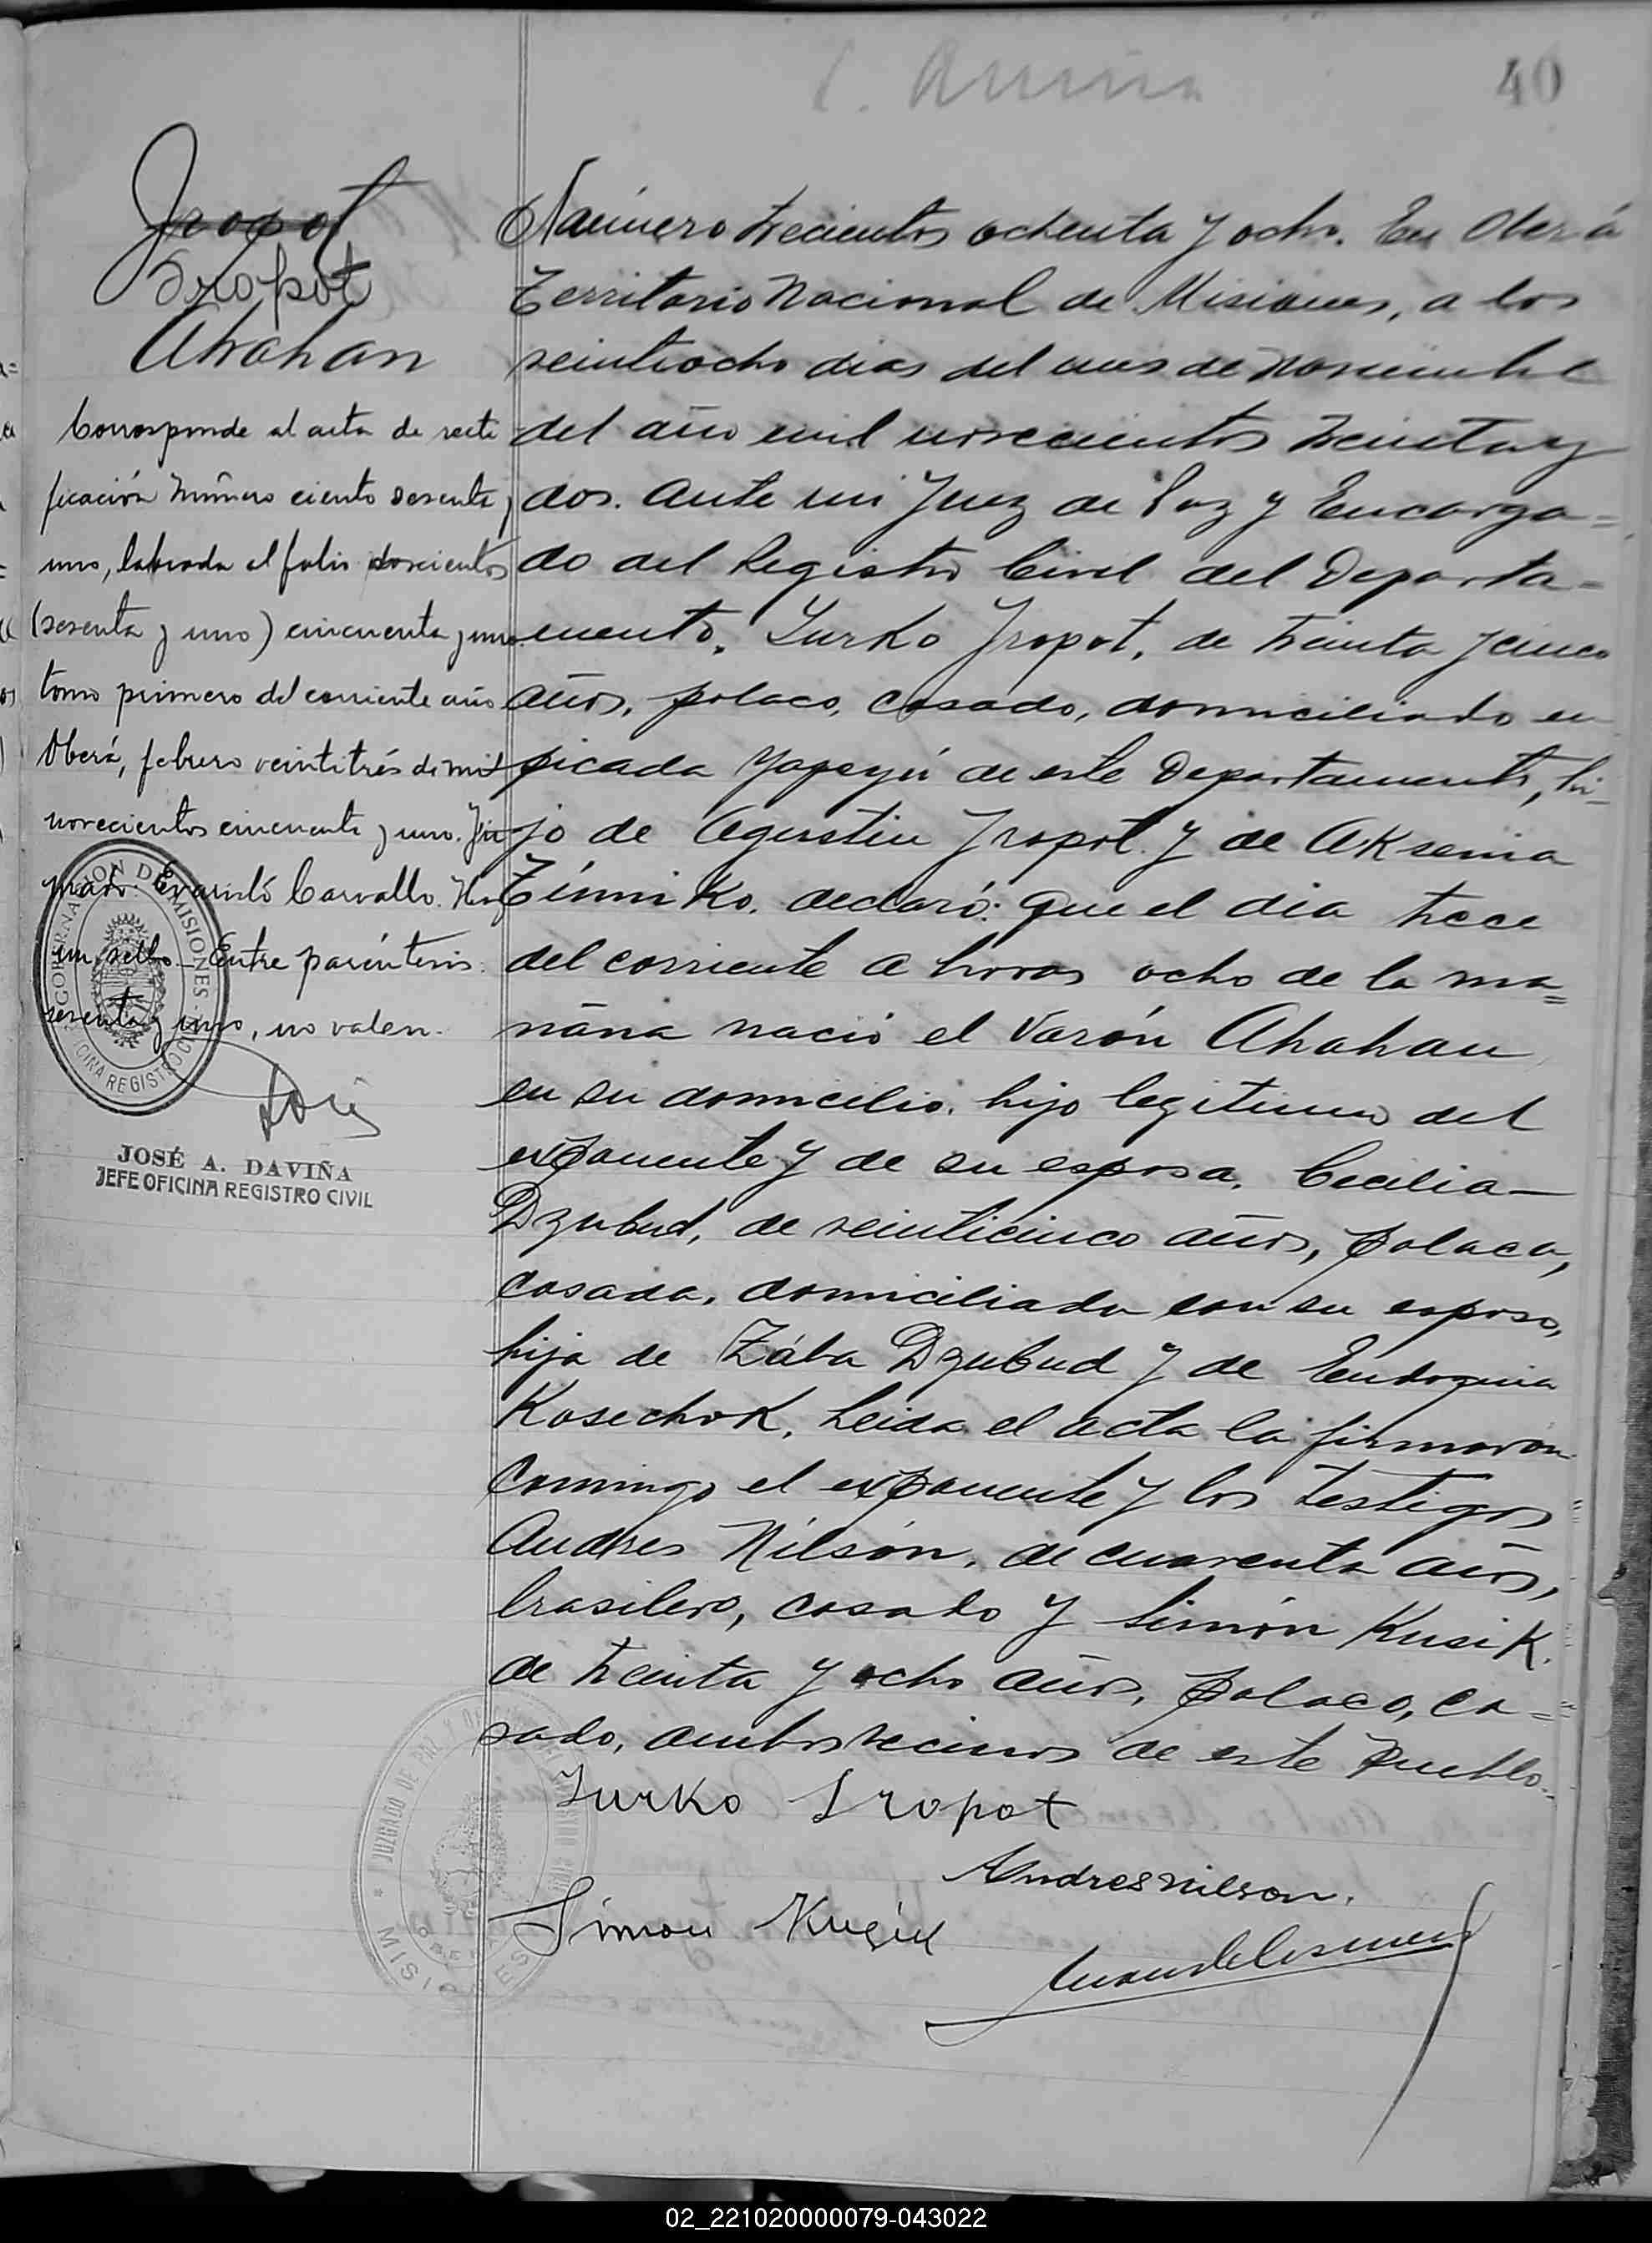 40
Jropot
Dropot
Ahahan
Corresponde al acta de recti
ficación número ciento sesenta y
uno, labrada al folio doscientos
(sesenta y uno) cincuenta y uno
tomo primero del corriente año
Oberá, febrero veintitrés de mil
novecientos cincuenta y uno. Fir
mado: Evaristo Carvallo. Hay
un sello - Entre paréntesis:
sesenta y uno, no valen.
GOBERNACION DE MISIONES
OFICINA REGISTRO CIVIL
JOSÉ A. DAVIÑA
JEFE OFICINA REGISTRO CIVIL
Número trecientos ochenta y ocho. En Oberá
Territorio Nacional de Misiones, a los
veintiocho dias del mes de Noviembre
del año mil novecientos treinta y
dos. Ante mi Juez de Paz y Encarga=
do del Registro Civil del Departa=
mento. Jurko Jropot, de treinta y cinco
años, polaco, casado, domiciliado en
picada Yapeyú de este Departamento, hi-
jo de Agustin Jropot y de Aksenia
Zimniko. declaró: Que el dia trece
del corriente a horas ocho de la ma=
ñana nació el Varón Ahahan
en su domicilio. hijo legitimo del
exponente y de su esposa. Cecilia—
Dzubud, de veinticinco años, polaca,
casada, domiciliada con su esposo,
hija de Zába Dzubud y de
Kosechok. Leida el acta la firmaron
conmigo el exponente y los testigos
Andres Nilsón, de cuarenta años,
brasilero, casado y Simón Kusik.
de treinta y ocho años, polaco, ca=
sado, ambos vecinos de este Pueblo.
Jurko Jropot
Andres nilson.
Simon
JUZGADO DE PAZ Y
MISIONES
02_221020000079-043022